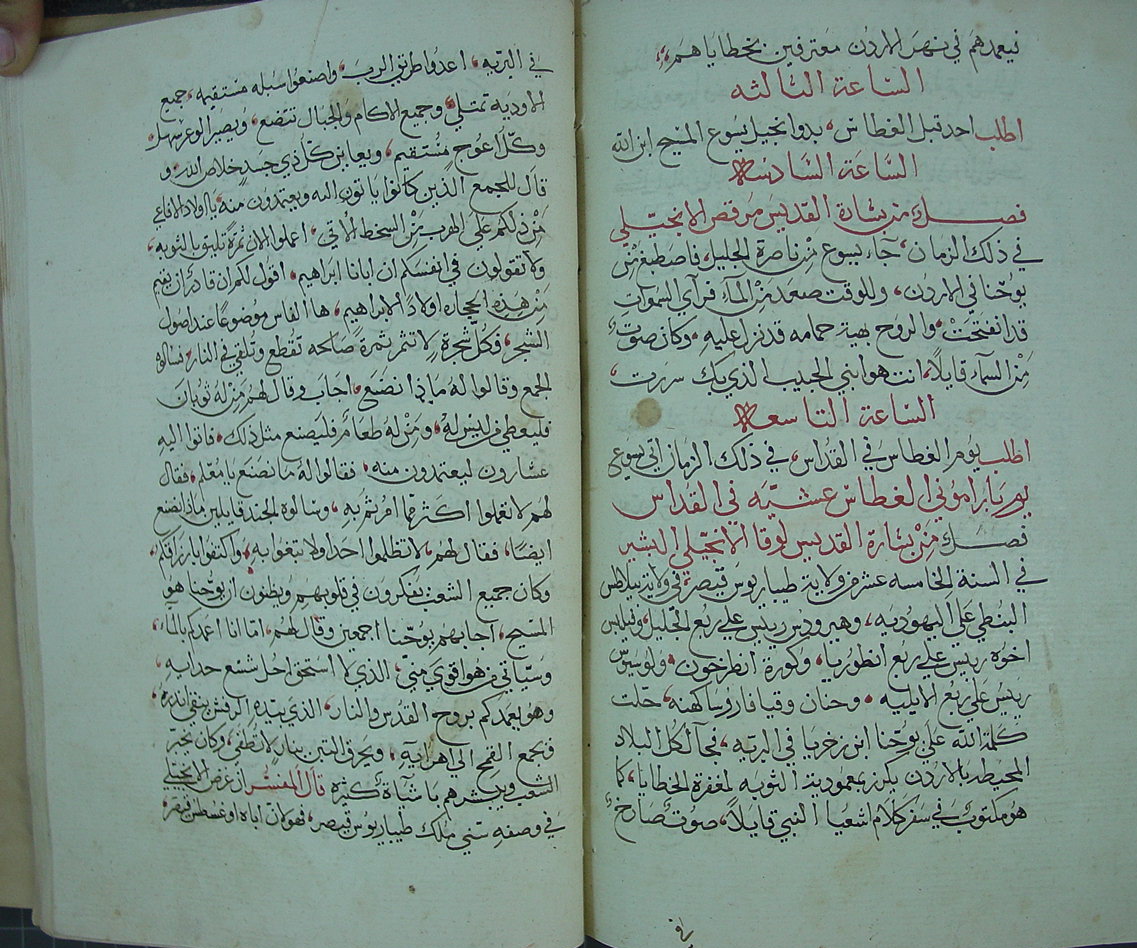 فيعمدهم في نهر الاردن معترفين بخطاياهم،
الساعة الثالثه
اطلب احد قبل الغطاس، بدو انجيل يسوع المسيح ابن الله
الساعة السادسه
فصل من بشارة القديس مرقص الانجيلي
في ذلك الزمان، جاء يسوع من ناصرة الجليل، فاصطبغ من
يوحنا في الاردن، وللوقت صعد من الماء فراي السموات
قد انفتحت، والروح بهية حمامه قد نزل عليه، وكان صوت
من السماء قايلاً، انت هو ابني الحبيب الذي بك سررت،
الساعة التاسعه
اطلب يوم الغطاس في القداس، في ذلك الزمان اتي يسوع
يوم بارامون الغطاس عشيه في القداس
فصل من بشارة القديس لوقا الانجيلي البشير
في السنة الخامسه عشر من ولاية طيباريوس قيصر في ولاية بيلاطس
البنطي على اليهوديه، وهيرودس رييس علي ربع الجليل، وفيلبس
اخوه رييس علي ربع انطوريا، وكورة انطرخون، ولوسيوس
رييس علي ربع الابليه، وحنان وقيافا روسا كهنه، حلت
كلمة الله علي يوحنا ابن زخريا في البريه، فجا الكل البلاد
المحيطه بالاردن يكرز بمعمودية التوبه لمغفرة الخطايا، كما
هو مكتوب في سفر كلام اشعيا النبي قايلاً، صوت صارخ
في البريه، اعدوا طريق الرب، واصنعوا سبله مستقيمه، جميع
الاوديه تمتلي، وجميع الاكام والجبال تتضع، ويصير الوعر سهلا،
وكل اعوج مستقيم، ويعاين كل ذي جسد خلاص الله، و
قال للجمع الذين كانوا ياتون اليه ويعتمدون منه، يا اولاد الافاعي
من دلكم علي الهرب من السخط الاتي، اعملوا الان ثمرة تليق بالتوبه،
ولا تقولون في انفسكم ان ابانا ابراهيم، اقول لكم ان الله قادر ان يقيم
من هذه الحجاره اولاد الابراهيم، ها الفاس موضوعًا عند اصول
الشجر، فكل شجرة لا تثمر ثمرة صالحه تقطع وتلقي في النار، فسالوه
الجمع وقالوا له ماذا نصنع، اجاب وقال لهم من له ثوبان
فليعطي من ليس له، ومن له طعام فليصنع مثل ذلك، فاتوا اليه
عشارون ليعتمدون منه، فقالوا له ما نصنع يا معلم، فقال
لهم لا تعملوا اكثر مما امرتم به، وسالوه الجند قايلين ماذا نصنع
ايضًا، فقال لهم، لا تظلموا احدا ولا تبغوا به، واكتفوا بارزاقكم،
وكان جميع الشعب يفكرون في قلوبهم ويظنون ان يوحنا هو
المسيح، اجابهم يوحنا اجمعين وقال لهم، اما انا اعمدكم بالماء،
وسياتي من هو اقوي مني، الذي لا استحق احل شسع حدايه،
وهو يعمدكم بروح القدس والنار، الذي بيده الرفش ينقي اندره،
فيجمع القمح الي هرايه، ويحرق التبن بنار لا تطفي، وكان يخبر
الشعب ويبشرهم باشياء كثيره قال المفسر ان غرض الانجيلي
في وصفه سني ملك طيباريوس قيصر، فهو لان اباه اوغسطس قيصر،